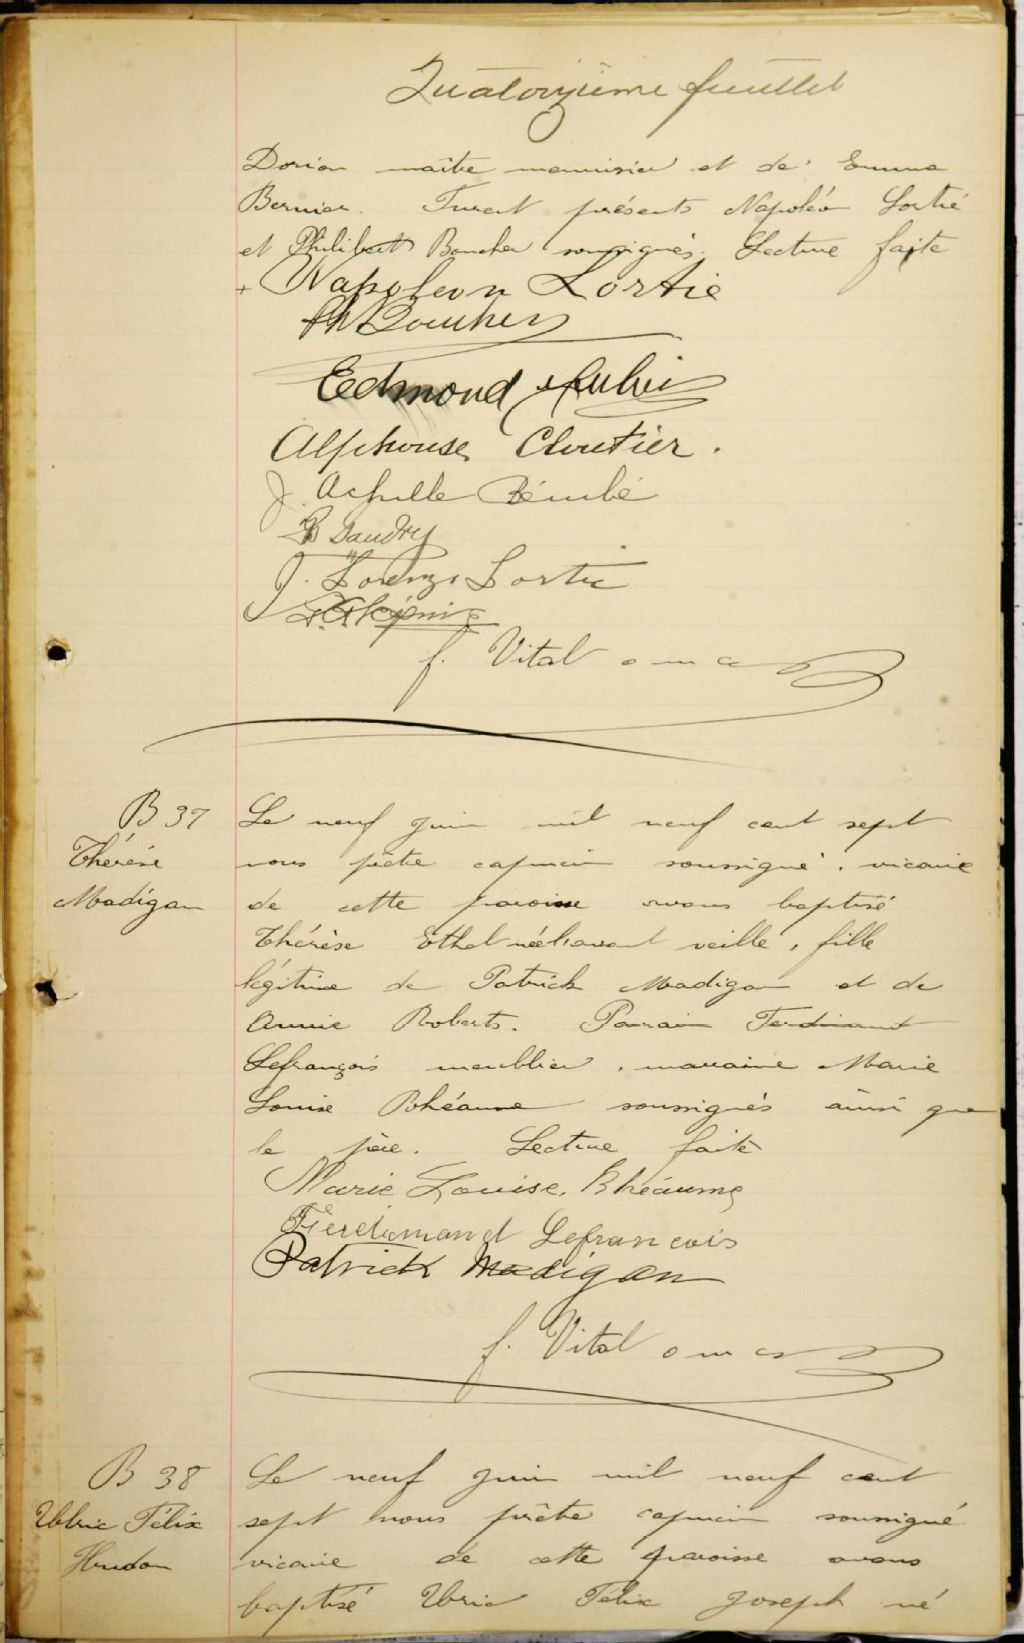 Quatorzième feuillet
Dorion maître menuisier et de Emma
Bernier. Furent présents Napoléon Lortie
et Philibert Boucher soussignés. Lecture faite
+ Napoleon Lortie
Ph Boucher
Edmond Aubin
Alphonse Cloutier.
J. Achille Bérubé
J. Lorenzo Lortie
f. Vital o m c
B 37
Thérèse
Madigan
Le neuf juin mil neuf cent sept
nous prêtre capucin soussigné, vicaire
de cette paroisse avons baptisé
Thérèse Ethel née l'avant veille, fille
légitime de Patrick Madigan et de
Annie Roberts. Parrain Ferdinand
Lefrançois meublier, marraine Marie
Louise Rhéaume soussignés ainsi que
le père. Lecture faite
Marie Louise. Rhéaume
Ferdinand Lefrancois
Patrick Madigan
f. Vital o m c
B 38
Ulric Félix
Hudon
Le neuf juin mil neuf cent
sept nous prêtre capucin soussigné
vicaire de cette paroisse avons
baptisé Ulric Félix Joseph né